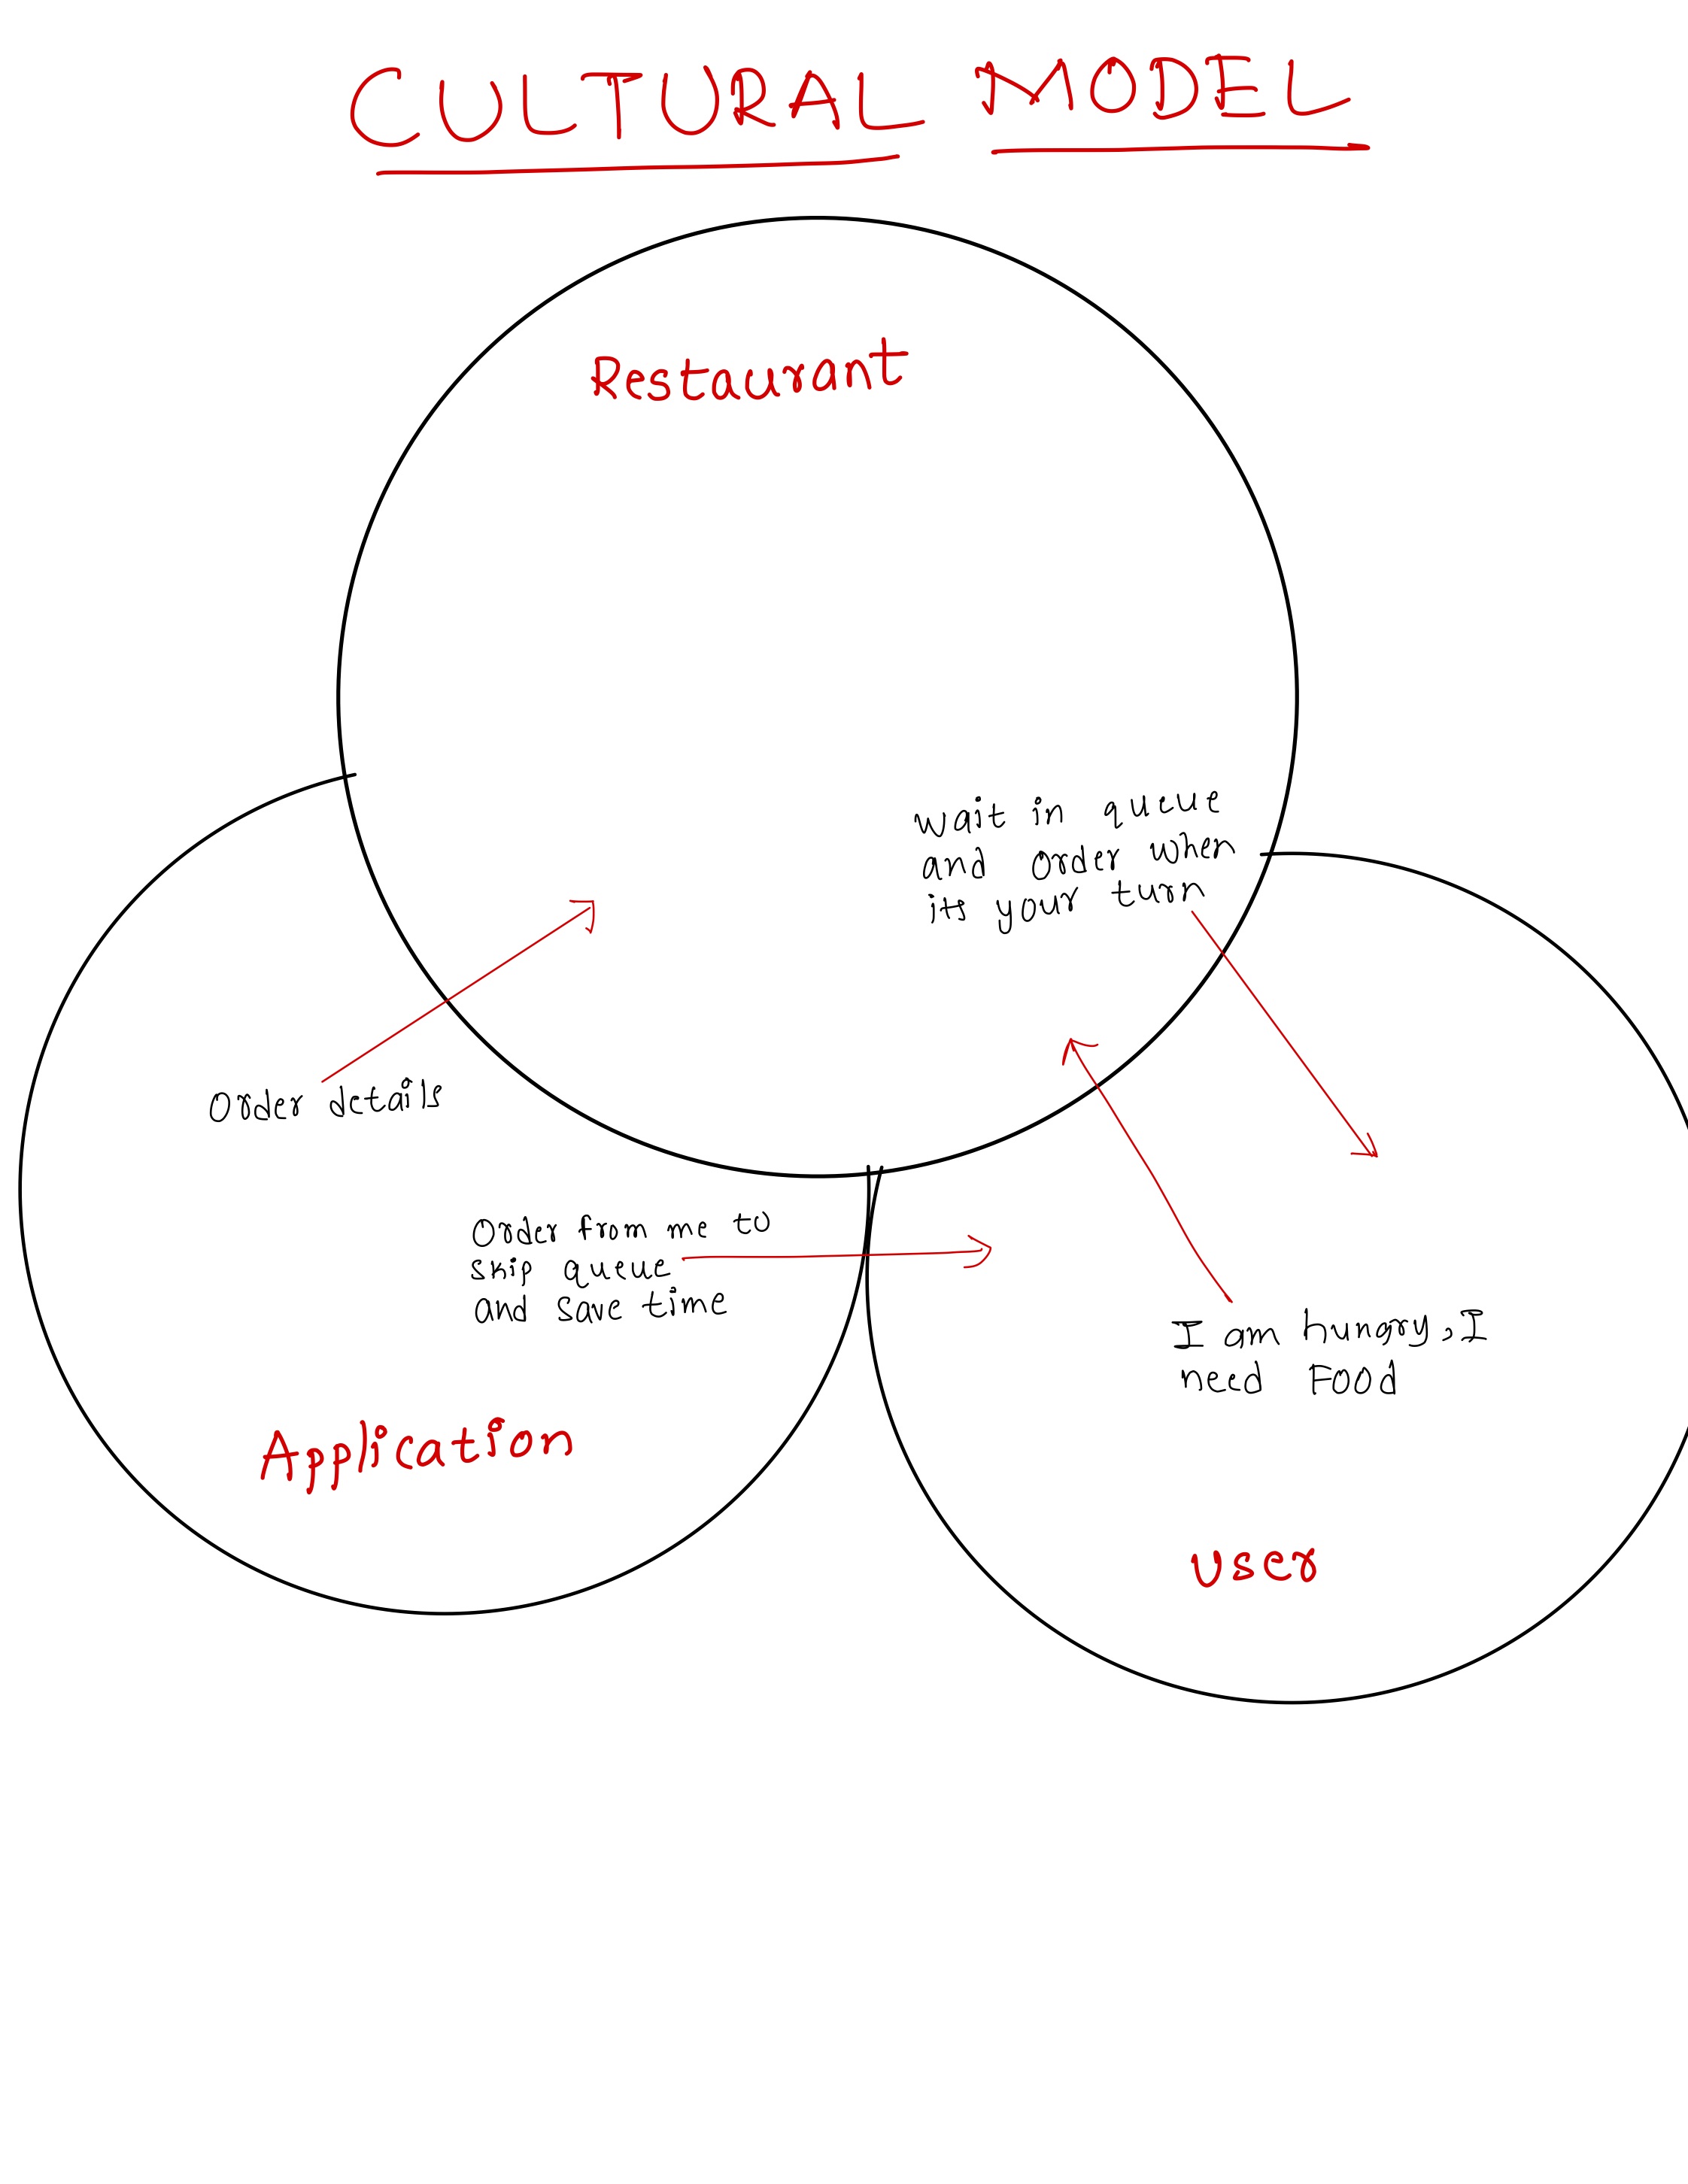 CULTURAL MODEL
Restaurant
Wait in queue
and order when
its your turn
Order details
Order from me to
skip queue
and save time
I am hungry, I
need FOOD
Application
User